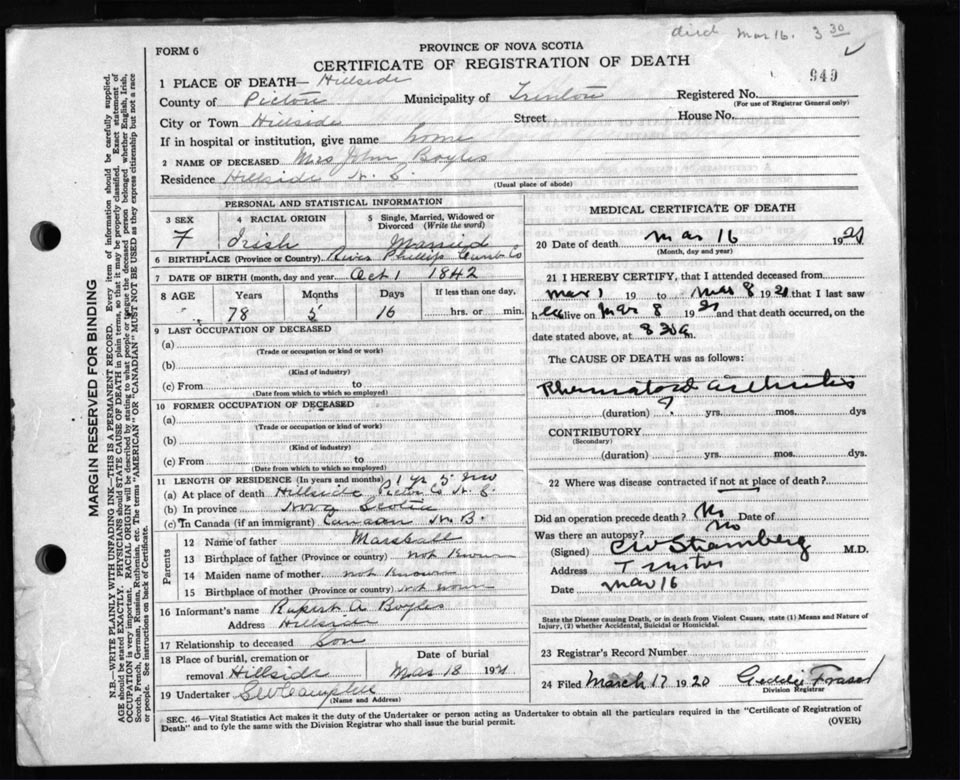 died Mar 16. 3 30
FORM 6
PROVINCE OF NOVA SCOTIA
CERTIFICATE OF REGISTRATION OF DEATH
949
1 PLACE OF DEATH— Hillside
County of Pictou Municipality of Trenton Registered No.
(For use of Registrar General only)
City or Town Hillside Street House No.
If in hospital or institution, give name home
2 NAME OF DECEASED Mrs John Boyles
Residence Hillside N. S.
(Usual place of abode)
PERSONAL AND STATISTICAL INFORMATION
3 SEX 4 RACIAL ORIGIN 5 Single, Married, Widowed or Divorced (Write the word)
F Irish Married
6 BIRTHPLACE (Province or Country) River Phillip Cumb Co
7 DATE OF BIRTH (month, day and year) Oct 1 1842
8 AGE Years Months Days If less than one day,
78 5 16 hrs. or min.
9 LAST OCCUPATION OF DECEASED
(a)
(Trade or occupation or kind or work)
(b)
(Kind of industry)
(c) From to
(Date from which to which so employed)
10 FORMER OCCUPATION OF DECEASED
(a)
(Trade or occupation or kind of work)
(b)
(Kind of industry)
(c) From to
(Date from which to which so employed)
11 LENGTH OF RESIDENCE (In years and months) 1 yr 5 mo
(a) At place of death Hillside Pictou Co N. S.
(b) In province Nova Scotia
(c) In Canada (if an immigrant) Canaan N. B.
Parents
12 Name of father Marshall
13 Birthplace of father (Province or country) not known
14 Maiden name of mother not known
15 Birthplace of mother (Province or country) not known
16 Informant's name Rupert A Boyles
Address Hillside
17 Relationship to deceased Son
18 Place of burial, cremation or removal Hillside Date of burial Mar 18 192
19 Undertaker
(Name and Address)
MEDICAL CERTIFICATE OF DEATH
20 Date of death Mar 16 192
(Month, day and year)
21 I HEREBY CERTIFY, that I attended deceased from
Mar 1 19 to Mar 8 1921 that I last saw
h alive on Mar 8 1921 and that death occurred, on the
date stated above, at 8 30 a m.
The CAUSE OF DEATH was as follows:
Rheumatoid arthritis
(duration) ? yrs. mos. dys
CONTRIBUTORY
(Secondary)
(duration) yrs. mos. dys.
22 Where was disease contracted if not at place of death?
Did an operation precede death? No Date of
Was there an autopsy? No
(Signed) M.D.
Address Trenton
Date Mar 16
State the Disease causing Death, or in death from Violent Causes, state (1) Means and Nature of Injury, (2) whether Accidental, Suicidal or Homicidal.
23 Registrar's Record Number
24 Filed March 17 1920 Fraser
Division Registrar
SEC. 46—Vital Statistics Act makes it the duty of the Undertaker or person acting as Undertaker to obtain all the particulars required in the "Certificate of Registration of
Death" and to fyle the same with the Division Registrar who shall issue the burial permit.
(OVER)
MARGIN RESERVED FOR BINDING
N.B.—WRITE PLAINLY WITH UNFADING INK—THIS IS A PERMANENT RECORD. Every item of information should be carefully supplied.
AGE should be stated EXACTLY. PHYSICIANS should STATE CAUSE OF DEATH in plain terms, so that it may be properly classified. Exact statement of
OCCUPATION is very important. RACIAL ORIGIN will be described by stating to what people or the deceased person belonged, whether English, Irish,
Scotch, French, German, Russian, Ruthenian, etc. The terms "AMERICAN" OR "CANADIAN" MUST NOT BE USED as they express citizenship but not a race
or people. See instructions on back of Certificate.